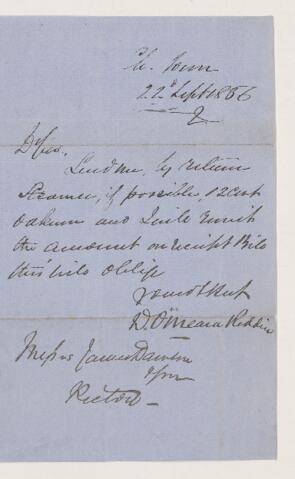 22d Sept 1886
D Sir,
Send me, by return
Steamer, if possible, 12 Cwt
Oakum and I will remit
the amount on receipt Bill
this will oblige
D. O'Meara Robbin
Messrs James Dawson
Picton